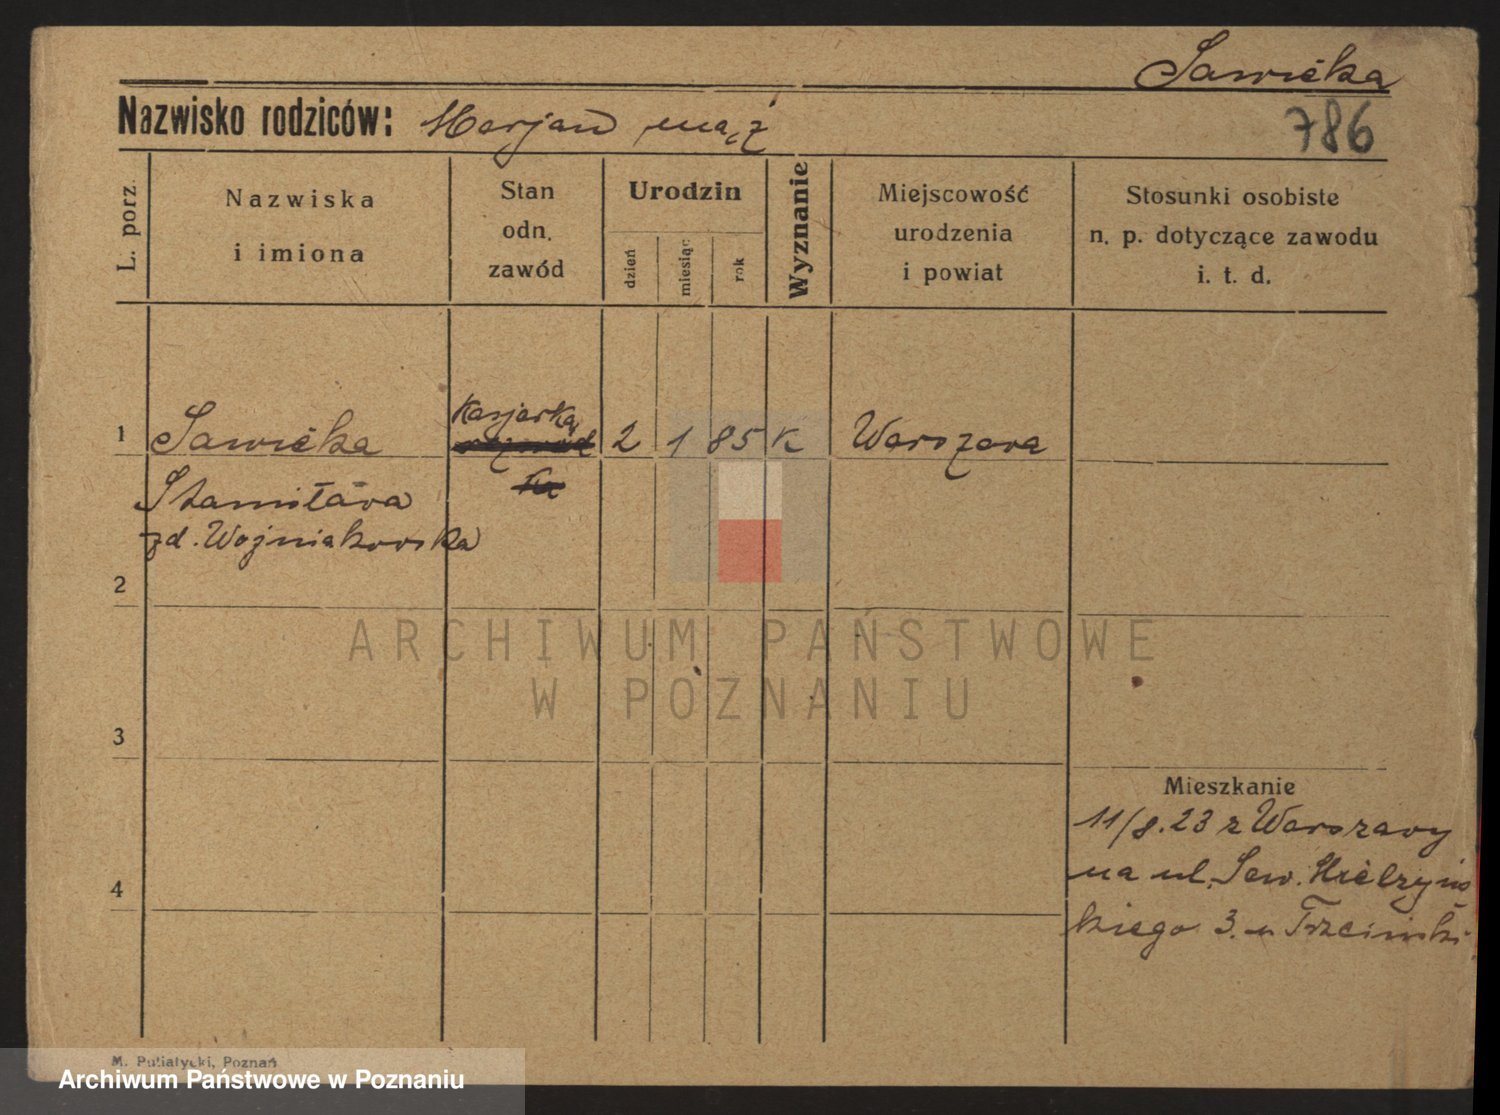 Sawicka
Nazwisko rodziców: Marjan mąż
786
L. porz.
Nazwiska
i imiona
Stan
odn.
zawód
Urodzin
dzień
miesiąc
rok
Wyznanie
Miejscowość
urodzenia
i powiat
Stosunki osobiste
n. p. dotyczące zawodu
i. t. d.
1 Sawicka Kasjerka 2 1 85 K Warszawa
Stanisława
zd. Woźniakowska
2
3
4
Mieszkanie
11/8.23 z Warszawy
na ul. Sew. Mielżyńs
kiego 3. u Trzciński
ARCHIWUM PAŃSTWOWE
W POZNANIU
M. Putiatycki, Poznań
Archiwum Państwowe w Poznaniu